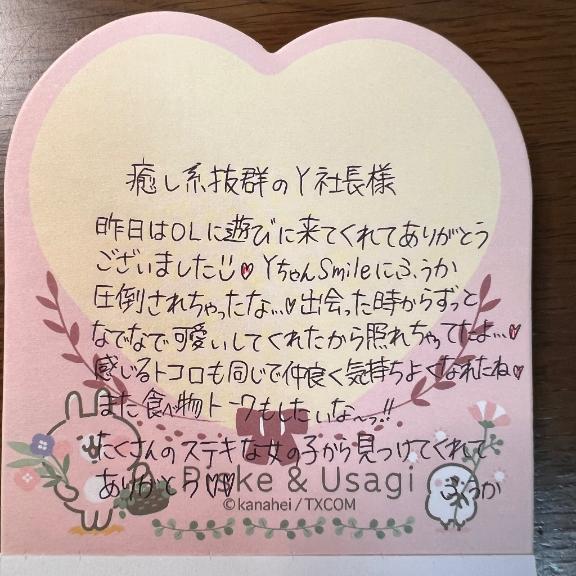 癒し系抜群のY社長様
昨日はOLに遊びに来てくれてありがとう
ございました♥YちゃんSmileにふうか
圧倒されちゃったな…♥出会った時からずっと
なでなで可愛いしてくれたから照れちゃってたよ…♥
感じるトコロも同じで仲良く気持ちよくなれたね♥
また食べ物トークもしたいな〜っ!!
たくさんのステキな女の子から見つけてくれて
ありがとう♡♥
ふうか
Piske & Usagi
©kanahei / TXCOM